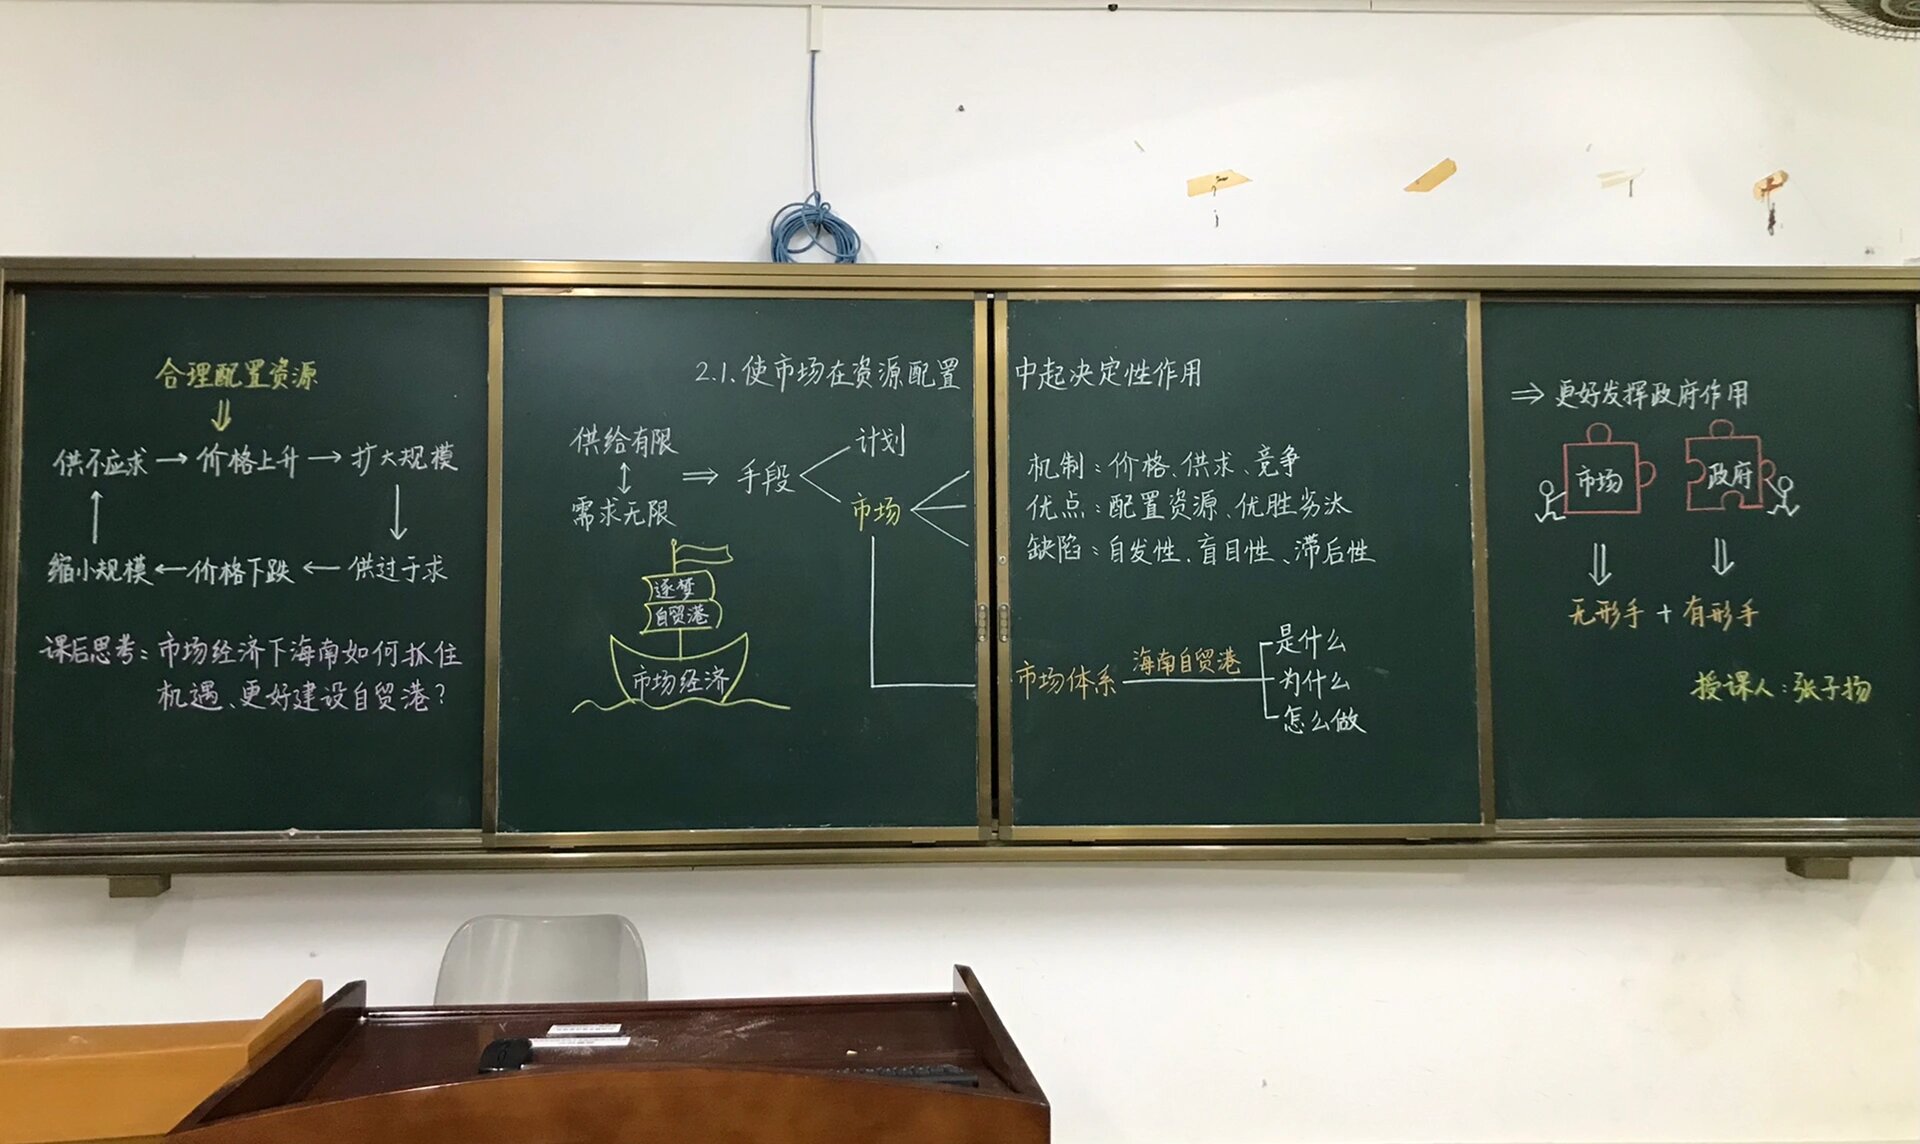 合理配置资源
供不应求→价格上升→扩大规模
缩小规模←价格下跌←供过于求
课后思考：市场经济下海南如何抓住
机遇、更好建设自贸港？
2.1.使市场在资源配置中起决定性作用
供给有限
需求无限
手段
计划
市场
逐梦
自贸港
市场经济
机制：价格、供求、竞争
优点：配置资源、优胜劣汰
缺陷：自发性、盲目性、滞后性
市场体系
海南自贸港
是什么
为什么
怎么做
⇒更好发挥政府作用
市场
政府
无形手+有形手
授课人：张子扬